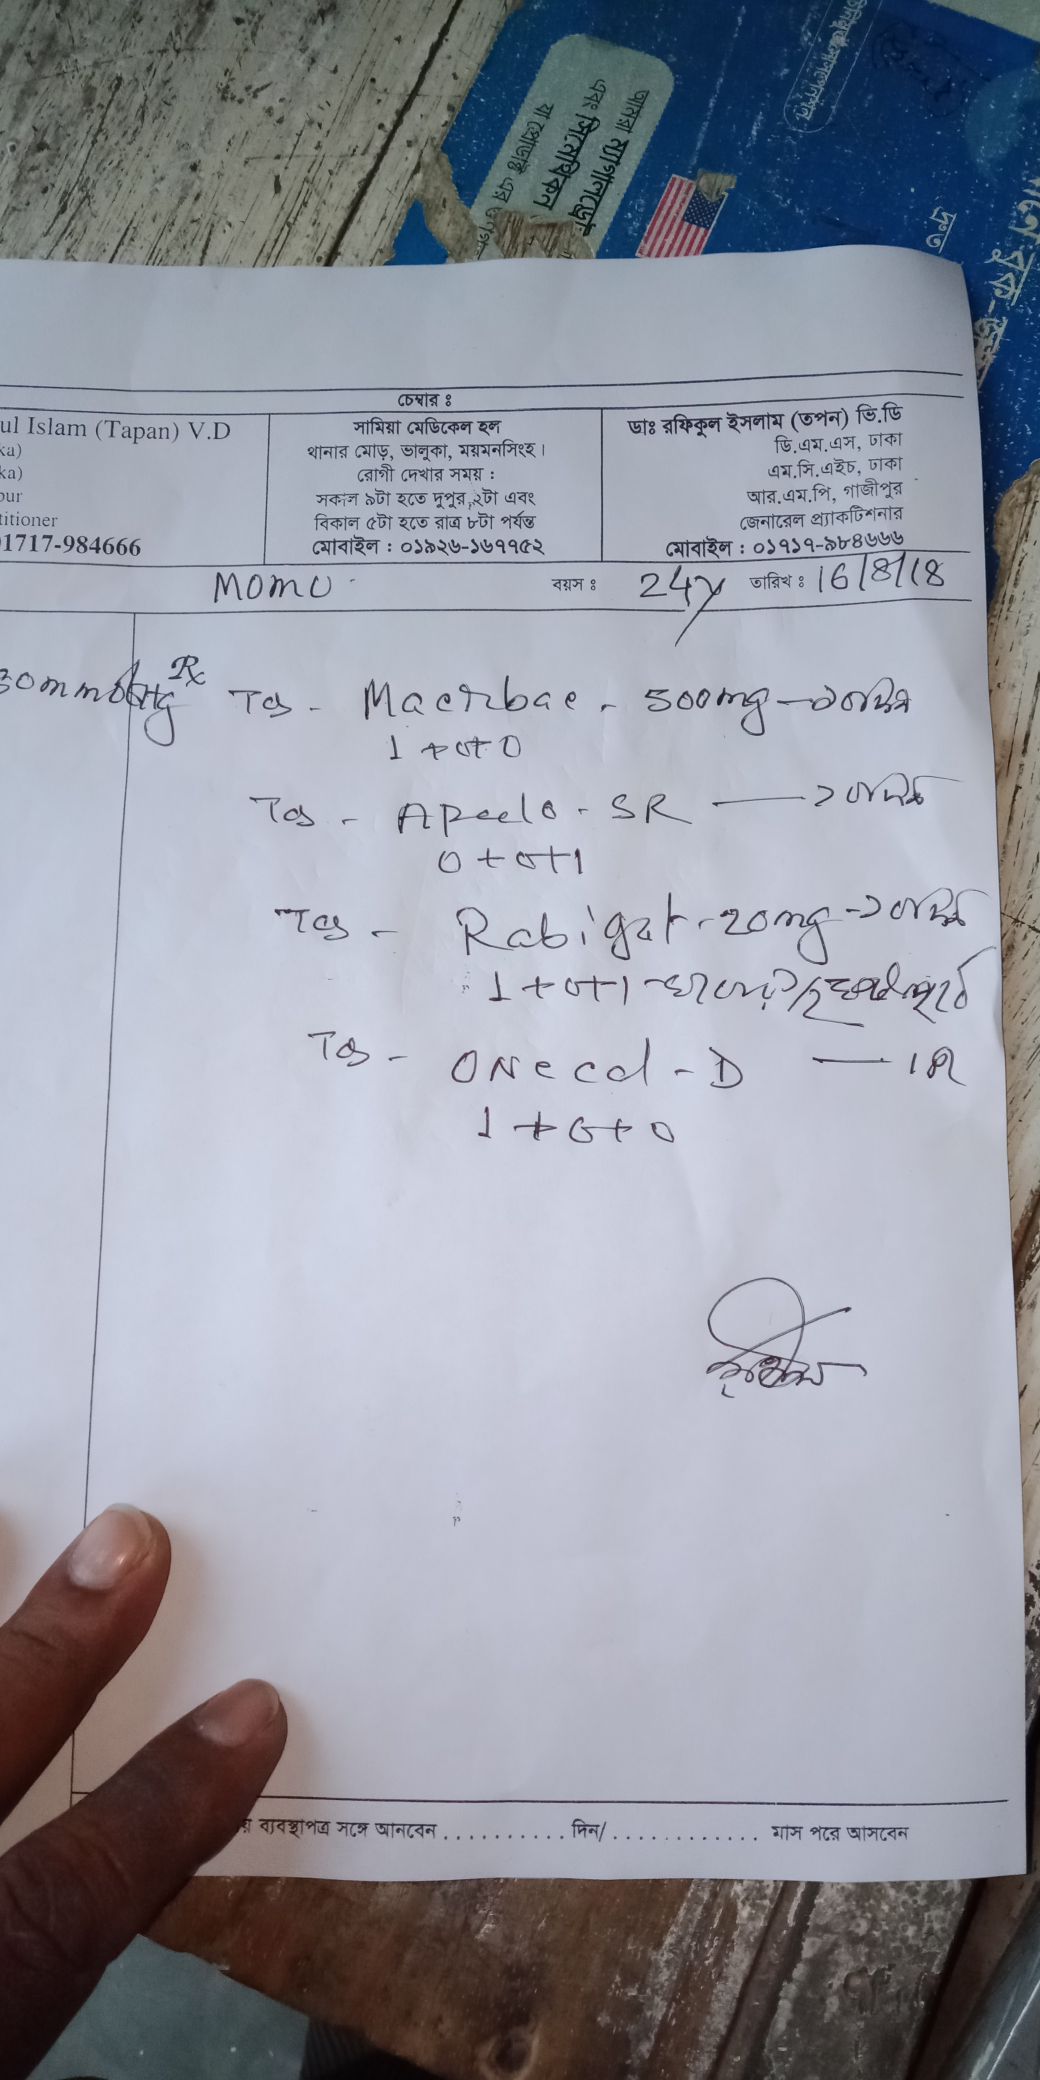 আমরা ম্যাগালড্রেট
এবং সিমেথিকন
দ্রুত
চেম্বার ঃ
ul Islam (Tapan) V.D
ka)
ka)
pur
titioner
01717-984666
সামিয়া মেডিকেল হল
থানার মোড়, ভালুকা, ময়মনসিংহ।
রোগী দেখার সময় :
সকাল ৯টা হতে দুপুর ২টা এবং
বিকাল ৫টা হতে রাত্র ৮টা পর্যন্ত
মোবাইল : ০১৯২৬-১৬৭৭৫২
ডাঃ রফিকুল ইসলাম (তপন) ভি.ডি
ডি.এম.এস, ঢাকা
এম.সি.এইচ, ঢাকা
আর.এম.পি, গাজীপুর
জেনারেল প্র্যাকটিশনার
মোবাইল : ০১৭১৭-৯৮৪৬৬৬
MOMO বয়স ঃ 24y তারিখ ঃ 16/8/18
30mmofHg
Rx
Tab - Macrbac - 500mg
1+0+0
Tab - Apeclo - SR
0+0+1
Tab - Rabigat - 20mg
1+0+1
Tab - ONecal - D
1+0+0
ব্যবস্থাপত্র সঙ্গে আনবেন . . . . . . . . . . দিন/ . . . . . . . . . . . . মাস পরে আসবেন